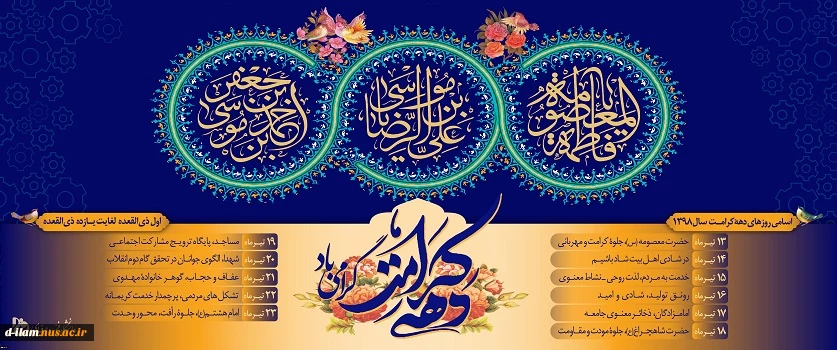 یا فاطمة المعصومة
علی بن موسی الرضا
احمد بن موسی بن جعفر
اسامی روزهای دهه کرامت سال ۱۳۹۸
۱۳ تیرماه حضرت معصومه (س)، جلوۀ کرامت و مهربانی
۱۴ تیرماه در شادی اهل بیت شاد باشیم
۱۵ تیرماه خدمت به مردم، لذت روحی ـ نشاط معنوی
۱۶ تیرماه رونق تولید، شادی و امید
۱۷ تیرماه امامزادگان، ذخائر معنوی جامعه
۱۸ تیرماه حضرت شاهچراغ (ع)، جلوۀ مودت و مقاومت
دهه کرامت
گرامی باد
اول ذی القعده لغایت یازده ذی القعده
۱۹ تیرماه مساجد، پایگاه ترویج مشارکت اجتماعی
۲۰ تیرماه شهدا، الگوی جوانان در تحقق گام دوم انقلاب
۲۱ تیرماه عفاف و حجاب، گوهر خانوادۀ مهدوی
۲۲ تیرماه تشکل های مردمی، پرچمدار خدمت کریمانه
۲۳ تیرماه امام هشتم (ع)، جلوۀ رأفت، محور وحدت
d-ilam.nus.ac.ir